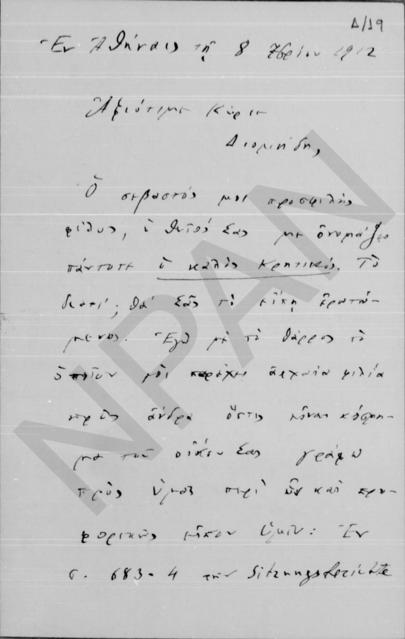 Δ/19
Ἐν Ἀθήναις τῇ 8 7βρίου 1912
Ἀξιότιμε Κύριε
Διομήδη,
Ὁ σεβαστός μοι προσφιλής
φίλος, ὁ θεῖός Σας με ὀνομάζει
πάντοτε ὁ καλὸς κρητικός. Τὸ
διατί; θὰ Σᾶς τὸ εἴπῃ ἐρωτώ-
μενος. Ἐγὼ μὲ τὸ θάρρος τὸ
ὁποῖον μοι παρέχει ἀρχαία φιλία
πρὸς ἄνδρα ὅστις εἶναι κόσμη-
μα τοῦ οἴκου Σας γράφω
πρὸς ὑμᾶς περὶ ὧν καὶ προ-
φορικῶς εἶπον ὑμῖν: Ἐν
σ. 683-4 τῶν Sitzungsberichte
NPAN